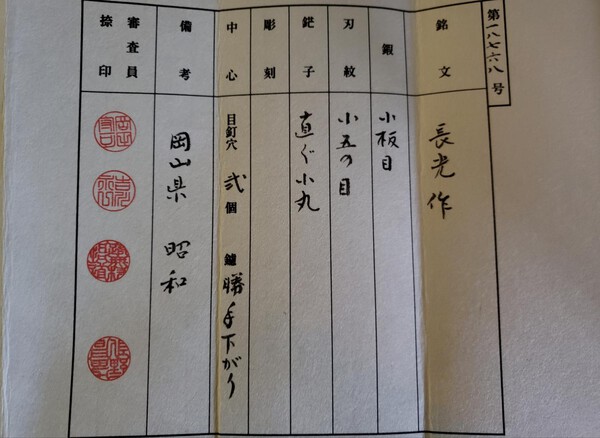 第一八七六八号
銘文 長光作
鍜 小板目
刃紋 小五の目
鋩子 直ぐ小丸
彫刻
中心 目釘穴 弐個 鑢 勝手下がり
備考 岡山県 昭和
審査員捺印